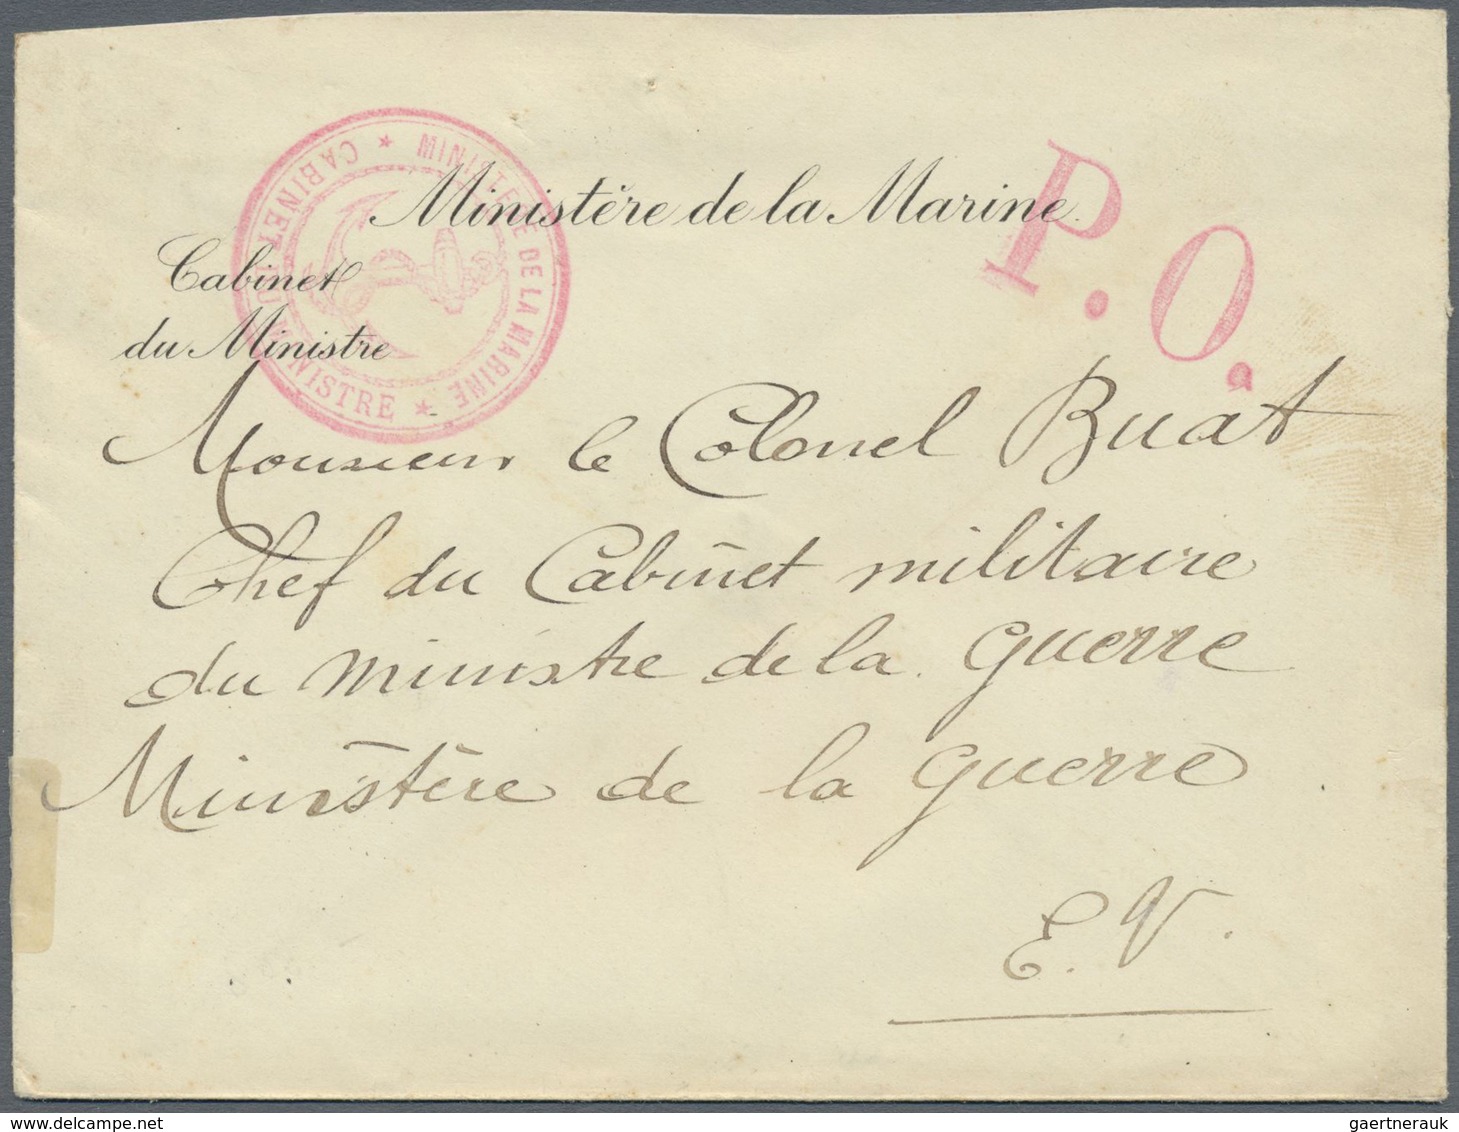 Ministère de la Marine
P.O.
MINISTÈRE DE LA MARINE ★ CABINET DU MINISTRE ★
Cabinet
du Ministre
Monsieur le Colonel Buat
Chef du Cabinet militaire
du ministre de la guerre
Ministère de la guerre
E.V.
gaertnerauk@delcampe.net